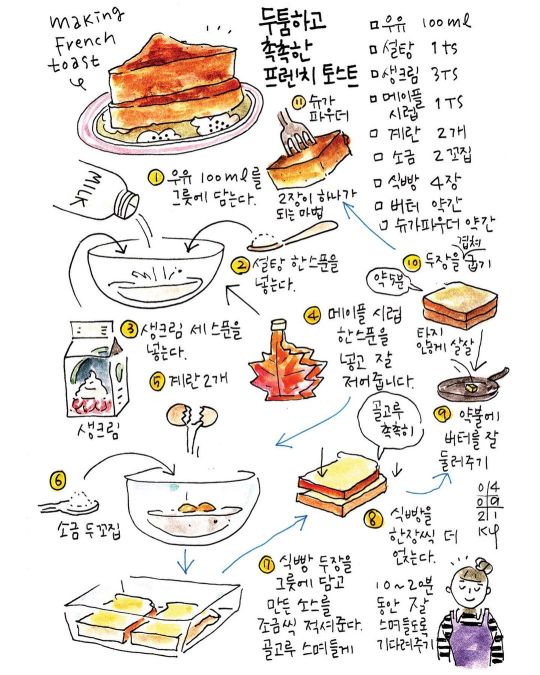 making
French
toast
두툼하고
촉촉한
프렌치 토스트
우유 100ml
설탕 1ts
생크림 3TS
메이플
시럽 1TS
계란 2개
소금 2꼬집
식빵 4장
버터 약간
슈가파우더 약간
⑪ 슈가
파우더
2장이 하나가
되는 마법
MILK
① 우유 100ml를
그릇에 담는다.
② 설탕 한스푼을
넣는다.
③ 생크림 세스푼을
넣는다.
생크림
④ 메이플 시럽
한스푼을
넣고 잘
저어줍니다.
⑤ 계란 2개
⑥
소금 두꼬집
⑦ 식빵 두장을
그릇에 담고
만든 소스를
조금씩 적셔준다.
골고루 스며들게
골고루
촉촉히
⑧ 식빵을
한장씩 더
얹는다.
10~20분
동안 잘
스며들도록
기다려주기
⑨ 약불에
버터를 잘
둘러주기
⑩ 두장을 겹쳐
굽기
약5분
타지
안게 살살
04
09
21